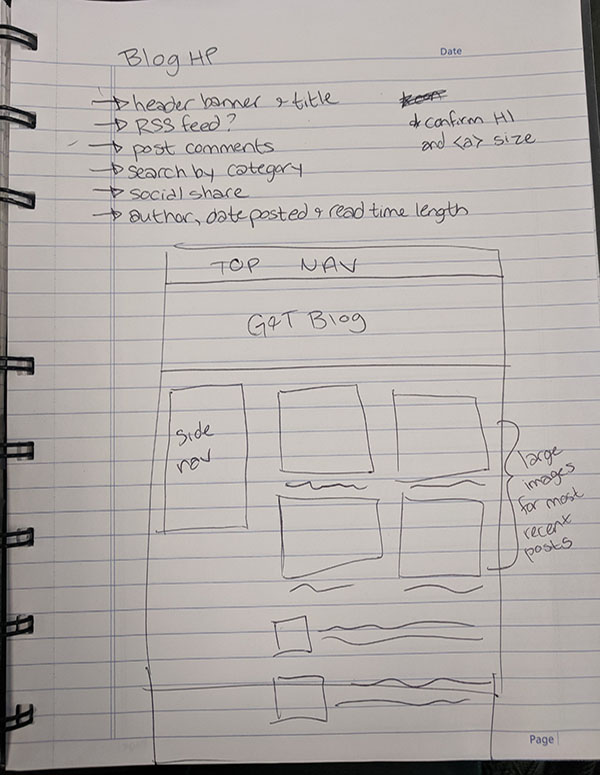 Blog HP
Date
→ header banner & title
→ RSS feed?
→ post comments
→ search by category
→ social share
→ author, date posted & read time length
* confirm H1
and <a> size
TOP NAV
G&T Blog
side
nav
large
images
for most
recent
posts
Page